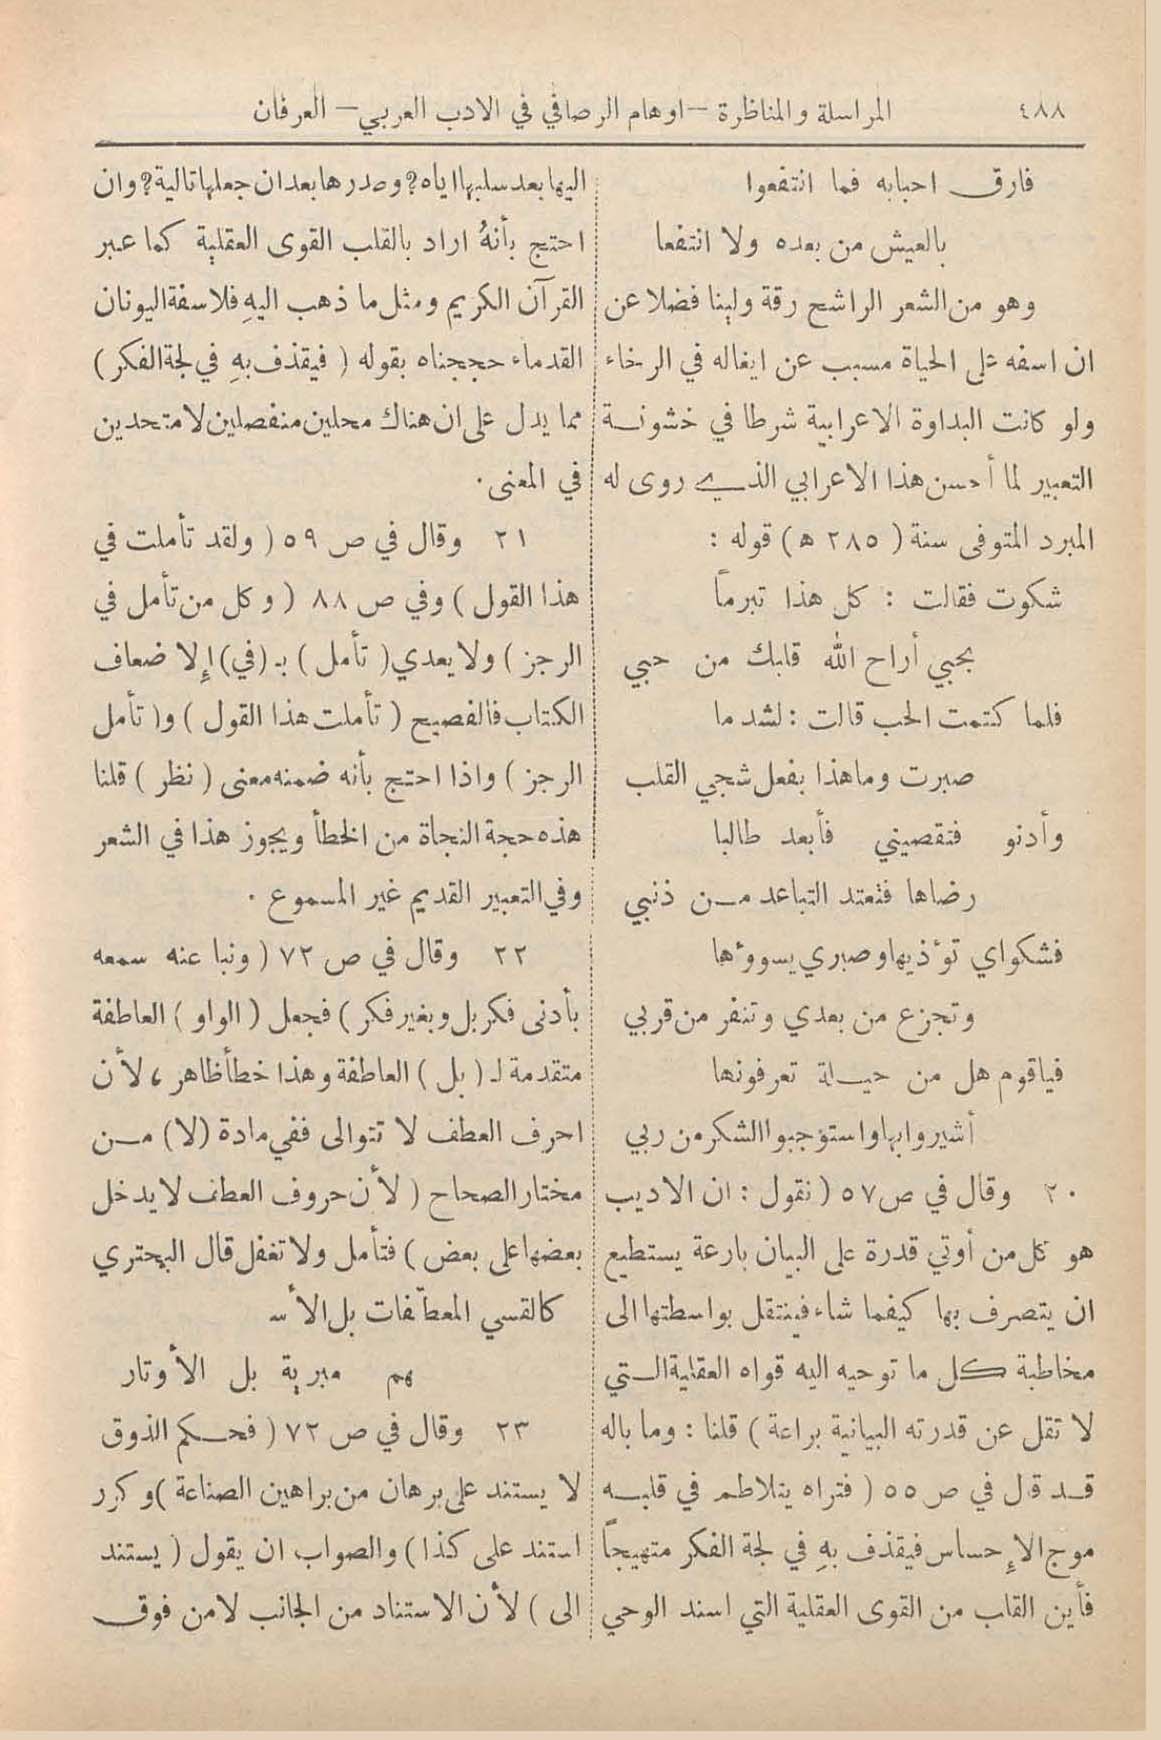 ٤٨٨ المراسلة والمناظرة — اوهام الرصافي في الادب العربي — العرفان
فارق احبابه فما انتفعوا
بالعيش من بعده ولا انتفعا
وهو من الشعر الراشح رقة ولينا فضلا عن
ان اسفه على الحياة مسبب عن ايغاله في الرخاء
ولو كانت البداوة الاعرابية شرطا في خشونة
التعبير لما أحسن هذا الاعرابي الذي روى له
المبرد المتوفى سنة ( ٢٨٥ ه ) قوله :
شكوت فقالت : كل هذا تبرماً
بحبي أراح الله قلبك من حبي
فلما كتمت الحب قالت : لشد ما
صبرت وما هذا بفعل شجي القلب
وأدنو فتقصيني فأبعد طالبا
رضاها فتعتد التباعد من ذنبي
فشكواي تؤذيها وصبري يسوءُها
وتجزع من بعدي وتنفر من قربي
فياقوم هل من حيلة تعرفونها
أشيروا بها واستوجبوا الشكر من ربي
٢٠ وقال في ص ٥٧ ( نقول : ان الاديب
هو كل من أوتي قدرة على البيان بارعة يستطيع
ان يتصرف بها كيفما شاء فينتقل بواسطتها الى
مخاطبة كل ما توحيه اليه قواه العقلية التي
لا تقل عن قدرته البيانية براعة ) قلنا : وما باله
قد قال في ص ٥٥ ( فتراه يتلاطم في قلبه
موج الإحساس فيقذف بهِ في لجة الفكر متهيجاً
فأين القلب من القوى العقلية التي اسند الوحي
اليها بعد سلبها اياه؟ وصدرها بعد ان جعلها تالية؟ وان
احتج بأنهُ اراد بالقلب القوى العقلية كما عبر
القرآن الكريم ومثل ما ذهب اليهِ فلاسفة اليونان
القدماء حججناه بقوله ( فيقذف بهِ في لجة الفكر )
مما يدل على ان هناك محلين منفصلين لا متحدين
في المعنى .
٢١ وقال في ص ٥٩ ( ولقد تأملت في
هذا القول ) وفي ص ٨٨ ( وكل من تأمل في
الرجز ) ولا يعدي ( تأمل ) بـ (في) إلا ضعاف
الكتاب فالفصيح ( تأملت هذا القول ) و( تأمل
الرجز ) واذا احتج بأنه ضمنه معنى ( نظر ) قلنا
هذه حجة النجاة من الخطأ ويجوز هذا في الشعر
وفي التعبير القديم غير المسموع .
٢٢ وقال في ص ٧٢ ( ونبا عنه سمعه
بأدنى فكر بل وبغير فكر ) فجعل ( الواو ) العاطفة
متقدمة لـ ( بل ) العاطفة وهذا خطأ ظاهر ، لأن
احرف العطف لا تتوالى ففي مادة (لا) من
مختار الصحاح ( لأن حروف العطف لا يدخل
بعضها على بعض ) فتأمل ولا تغفل قال البحتري
كالقسي المعطّفات بل الأسـ
هم مبرية بل الأوتار
٢٣ وقال في ص ٧٢ ( فحكم الذوق
لا يستند على برهان من براهين الصناعة ) وكرر
استند على كذا ) والصواب ان يقول ( يستند
الى ) لأن الاستناد من الجانب لا من فوق